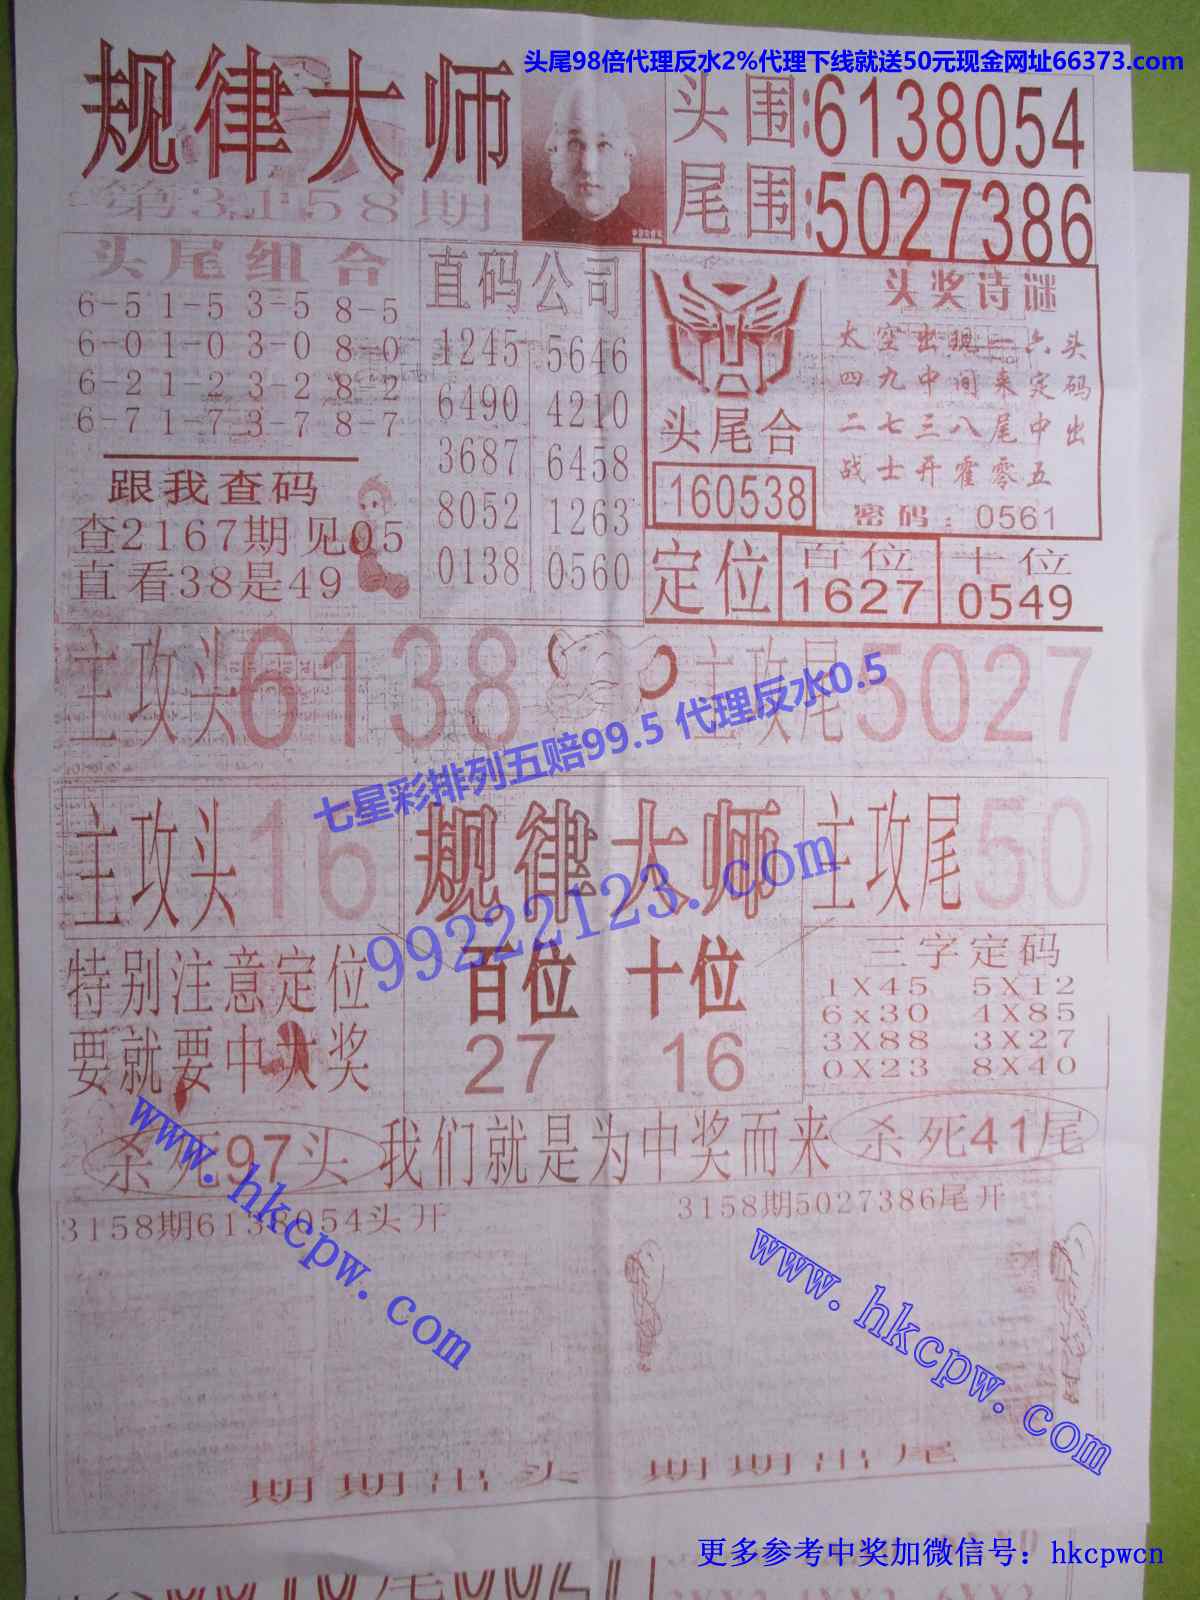 头尾98倍代理反水2%代理下线就送50元现金网址66373.com
规律大师
第3158期
头围:6138054
尾围:5027386
头尾组合
6-5 1-5 3-5 8-5
6-0 1-0 3-0 8-0
6-2 1-2 3-2 8-2
6-7 1-7 3-7 8-7
跟我查码
查2167期见05
直看38是49
直码公司
1245 5646
6490 4210
3687 6458
8052 1263
0138 0560
头尾合
160538
头奖诗谜
太空出现一六头
四九中间来定码
二七三八尾中出
战士开霍零五
密码:0561
定位
百位
1627
十位
0549
主攻头6138
主攻尾5027
七星彩排列五赔99.5 代理反水0.5
主攻头16
规律大师
主攻尾50
99222123.com
特别注意定位
要就要中大奖
百位 十位
27 16
三字定码
1X45 5X12
6x30 4X85
3X88 3X27
0X23 8X40
杀死97头
我们就是为中奖而来
杀死41尾
www.hkcpw.com
3158期6138054头开
3158期5027386尾开
www.hkcpw.com
期期出头 期期出尾
更多参考中奖加微信号：hkcpwcn